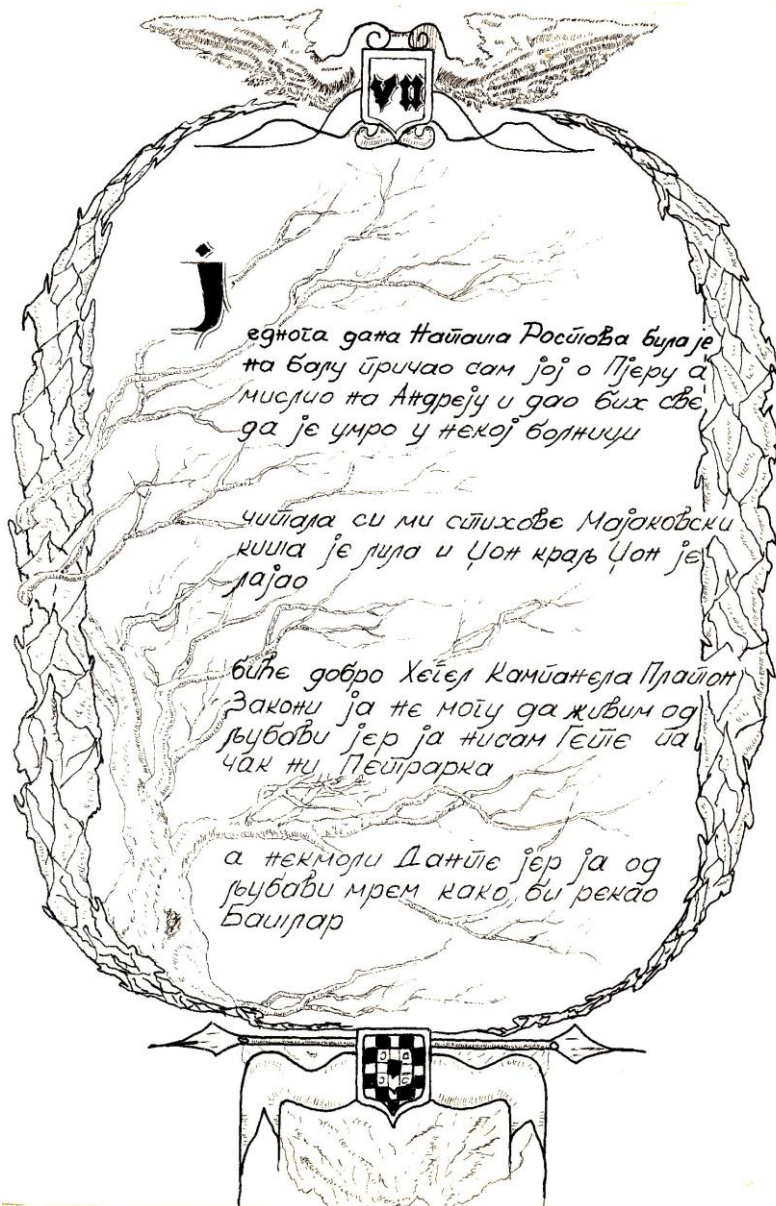 VII
Једнога дана Наташа Ростова била је
на балу причао сам јој о Пјеру а
мислио на Андреју и дао бих све
да је умро у некој болници
читала си ми стихове Мајаковски
киша је лила и Џон краљ Џон је
лајао
биће добро Хегел Кампанела Платон
Закони ја не могу да живим од
љубави јер ја нисам Гете па
чак ни Петрарка
а некмоли Данте јер ја од
љубави мрем како би рекао
Башлар